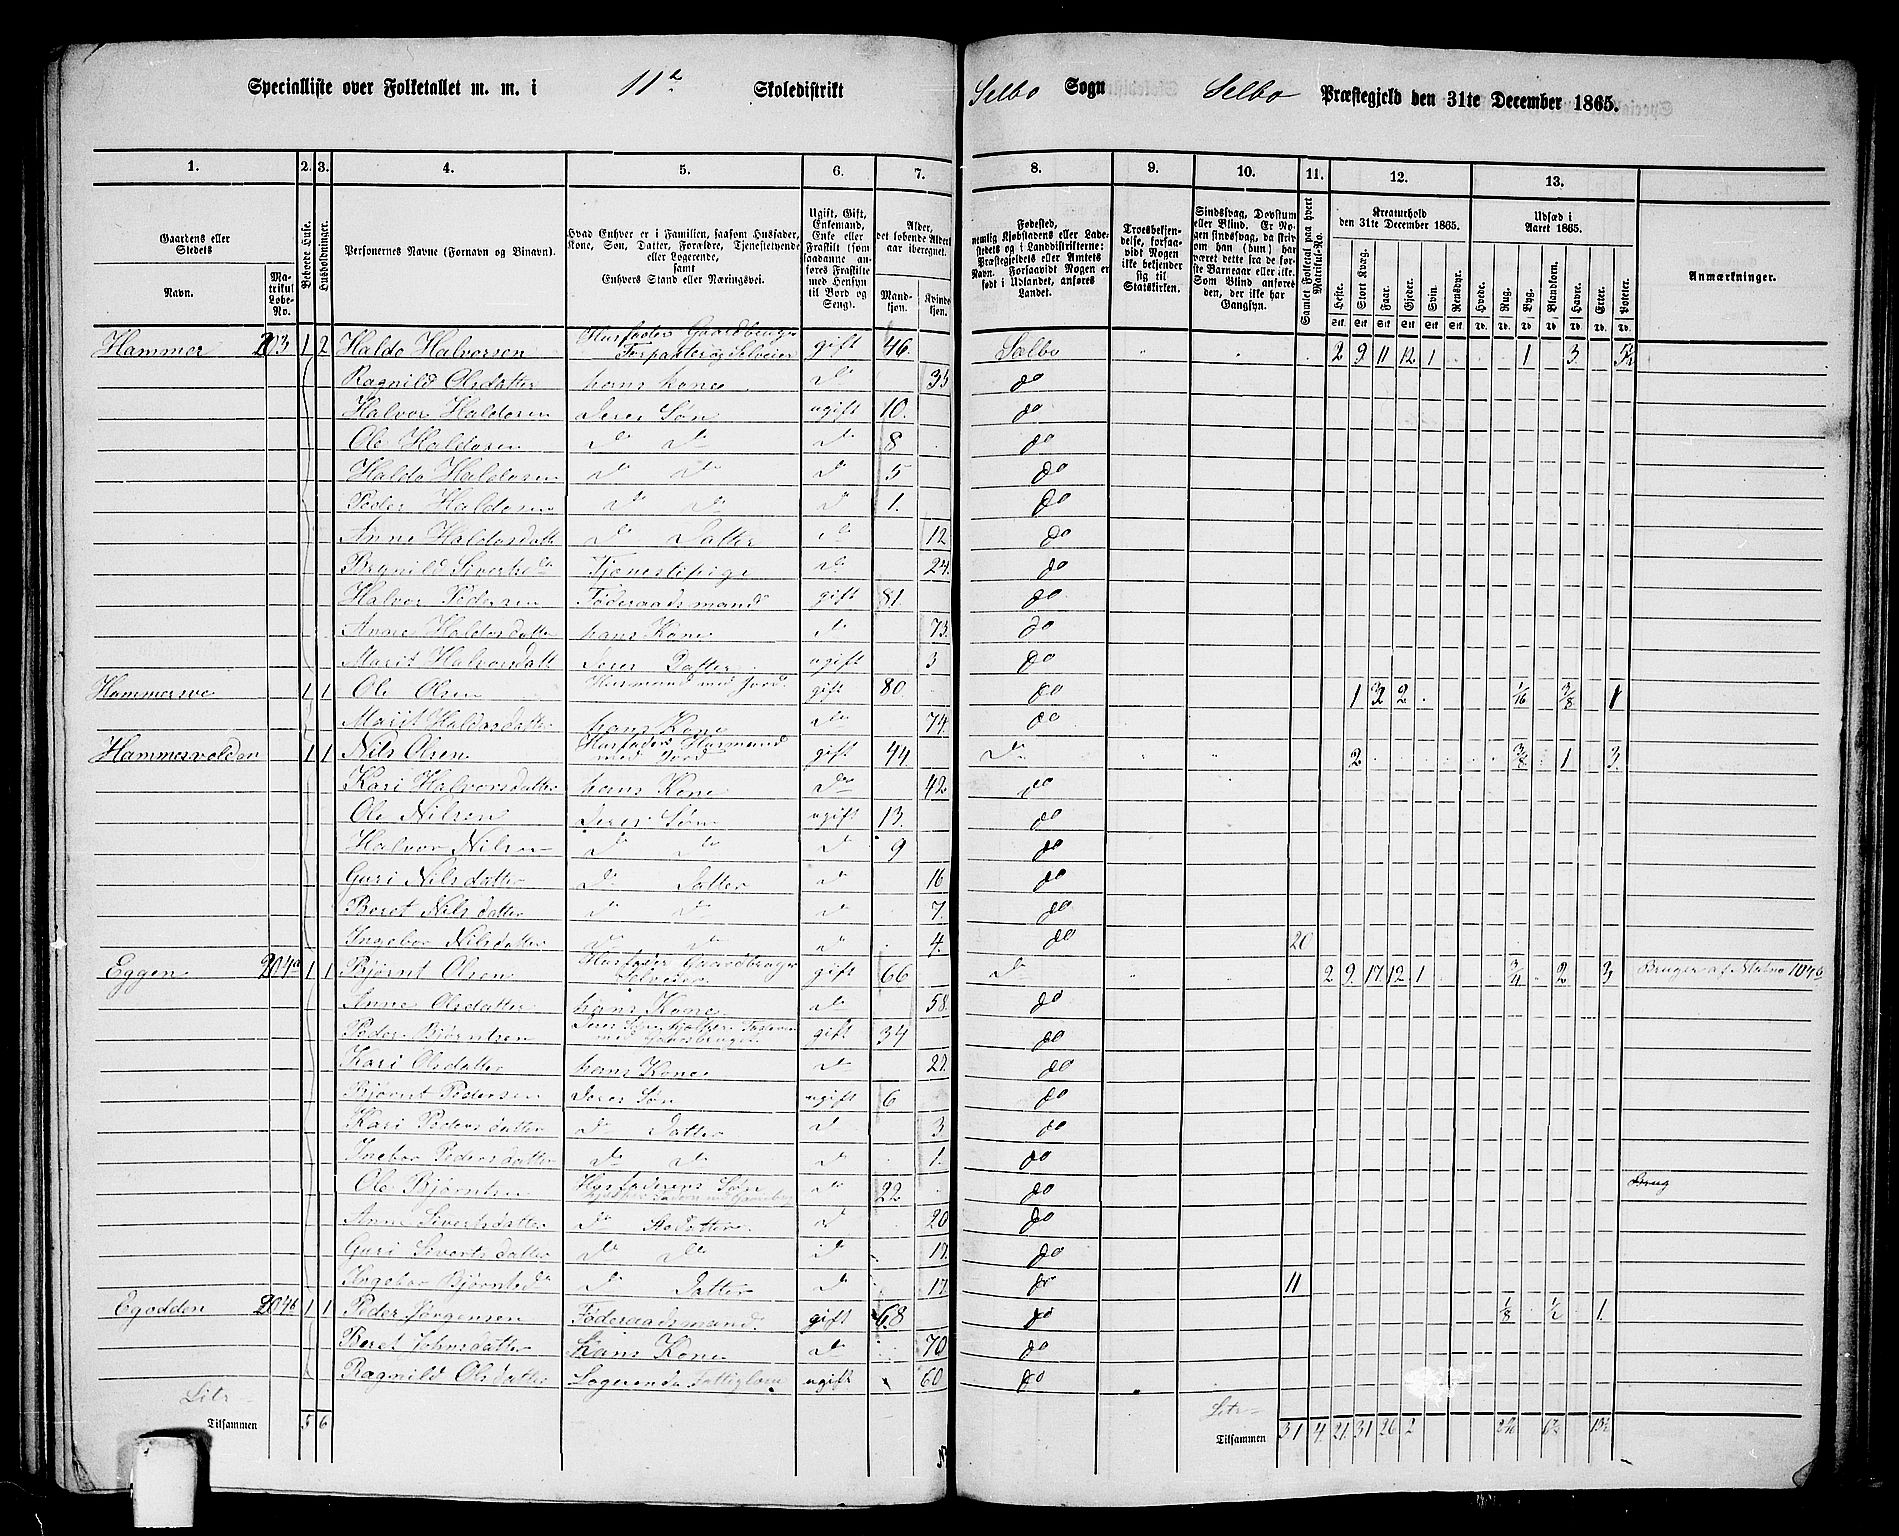 Specialliste over Folketallet m. m. i 11te Skoledistrikt Selbo Sogn Selbo Præstegjeld den 31te December 1865.
1. 2. 3. 4. 5. 6. 7. 8. 9. 10. 11. 12. 13.
Gaardens eller Stedets Navn. Matrikul Løbe-No. Beboede Huse. Husholdninger. Personernes Navne (Fornavn og Binavn). Hvad Enhver er i Familien, saasom Husfader, Kone, Søn, Datter, Forældre, Tjenestetyende eller Logerende, samt Enhvers Stand eller Næringsvei. Ugift, Gift, Enkemand, Enke eller Fraskilt (saaledes anføres Fraskilte med Hensyn til Bord og Seng). Alder, det løbende Alders aar iberegnet. Mandkjøn. Kvindekjøn.
Fødested, nemlig Kjøbstadens eller Ladestedets og i Landdistrikterne: Præstegjeldets eller Amtets Navn. Forsaavidt Nogen er født i Udlandet, anføres Landet. Troesbekjendelse, forsaavidt Nogen ikke bekjender sig til Statskirken. Sindssvag, Døvstum eller Blind anføres. Samlet Folketal paa hvert Matrikul-No. Kreaturhold den 31te December 1865. Heste. Stort Kvæg. Faar. Gjeder. Svin. Rensdyr. Udsæd i Aaret 1865. Hvede. Rug. Byg. Blandkorn. Havre. Erter. Poteter. Anmærkninger.
Hammer 203 1 2 Haldo Halvorsen Husfader Gaardbruger Forpagter og Selveier gift 46 Selbo 2 9 11 12 1 1 3 5½
Ragnild Olsdatter hans Kone Do 35 do
Halvor Haldosen Deres Søn ugift 10 do
Ole Haldosen Do Do Do 8 do
Haldo Haldosen Do Do Do 5 do
Peder Haldosen Do Do Do 1 do
Anne Haldosdatt Do Datter Do 12 do
Brynild Siverts do Tjenestepige Do 24 do
Halvor Pedersen Føderaadsmand gift 81 do
Anne Haldosdatter hans Kone Do 73 do
Marit Halvorsdatt Deres Datter ugift 3 do
Hammersve 1 1 Ole Olsen Husmand med Jord gift 80 do 1 32 2 1/16 3/8 1
Marit Haldosdatter hans Kone Do 74 do
Hammersvolden 1 1 Nils Olsen Husfader Husmand med Jord gift 44 Do 2 3/8 1 3
Kari Halvorsdatter hans Kone Do 42 do
Ole Nilsen Deres Søn ugift 13 do
Halvor Nilsen Do Do Do 9 do
Guri Nilsdatter Do Datter Do 16 do
Beret Nilsdatter Do Do Do 7 do
Ingebor Nilsdatter Do Do Do 4 do 20
Eggen 204a 1 1 Bjørnt Olsen Husfader Gaardbruger Selveier gift 66 Do 2 9 17 12 1 3/4 2 3 Bruger af Matno 104b
Anne Olsdatter hans Kone Do 58 do
Peder Bjørntsen Deres Søn hjelper Faderen med Gaardsbruget gift 34 do
Kari Olsdatter hans Kone Do 22 do
Bjørnt Pedersen Deres Søn ugift 6 do
Kari Pedersdatter Do Datter Do 3 do
Inebor Pedersdatter Do Do Do 1 do
Ole Bjørntsen Husfaderens Søn Do 22 do
Anne Sivertsdatter Do Stedatter Do 20 do
Guri Sivertsdatter Do Do Do 17 do
Ingebor Bjørntsd Do Datter Do 17 do 11
Egodden 204b 1 1 Peder Jørgensen Føderaadsmand gift 68 do 1/8 1/2 1
Beret Johnsdatter Hans Kone Do 70 do
Ragnild Olsdatter Logerende Fattiglem ugift 60 do
Litr
Tilsammen 5 6
Litr
Tilsammen 31 4 21 31 26 2